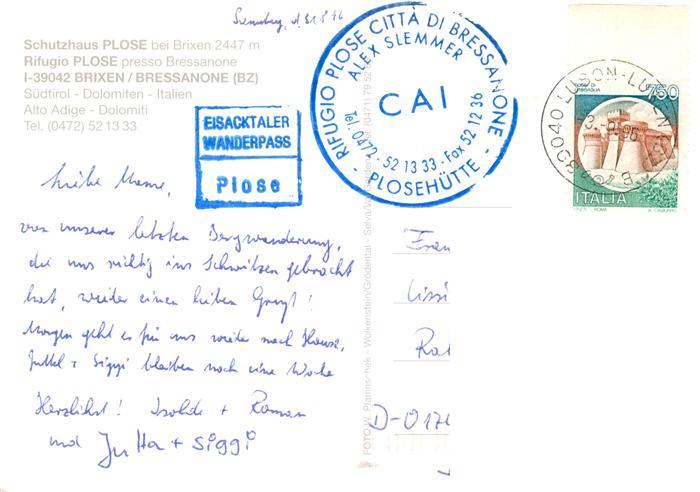 Samstag, d. 31.8.96
Schutzhaus PLOSE bei Brixen 2447 m
Rifugio PLOSE presso Bressanone
I-39042 BRIXEN / BRESSANONE (BZ)
Südtirol - Dolomiten - Italien
Alto Adige - Dolomiti
Tel. (0472) 52 13 33
EISACKTALER
WANDERPASS
Plose
RIFUGIO PLOSE CITTÀ DI BRESSANONE
ALEX SLEMMER
CAI
Tel. 0472 - 52 13 33 - Fax 52 12 36
- PLOSEHÜTTE -
39040 LUSON-LÜSEN
750
ITALIA
Liebe Mame,
von unserer letzten Bergwanderung,
die uns richtig ins Schwitzen gebracht
hat, wieder einen lieben Gruß!
Morgen geht es für uns wieder nach Hause,
Juttel + Siggi bleiben noch eine Woche
Herzlichst! Isolde + Roman
und Jutta + Siggi
FOTO W. Planinschek - Wolkenstein/Grödental - Selva/
(0471) 79 52
D-017